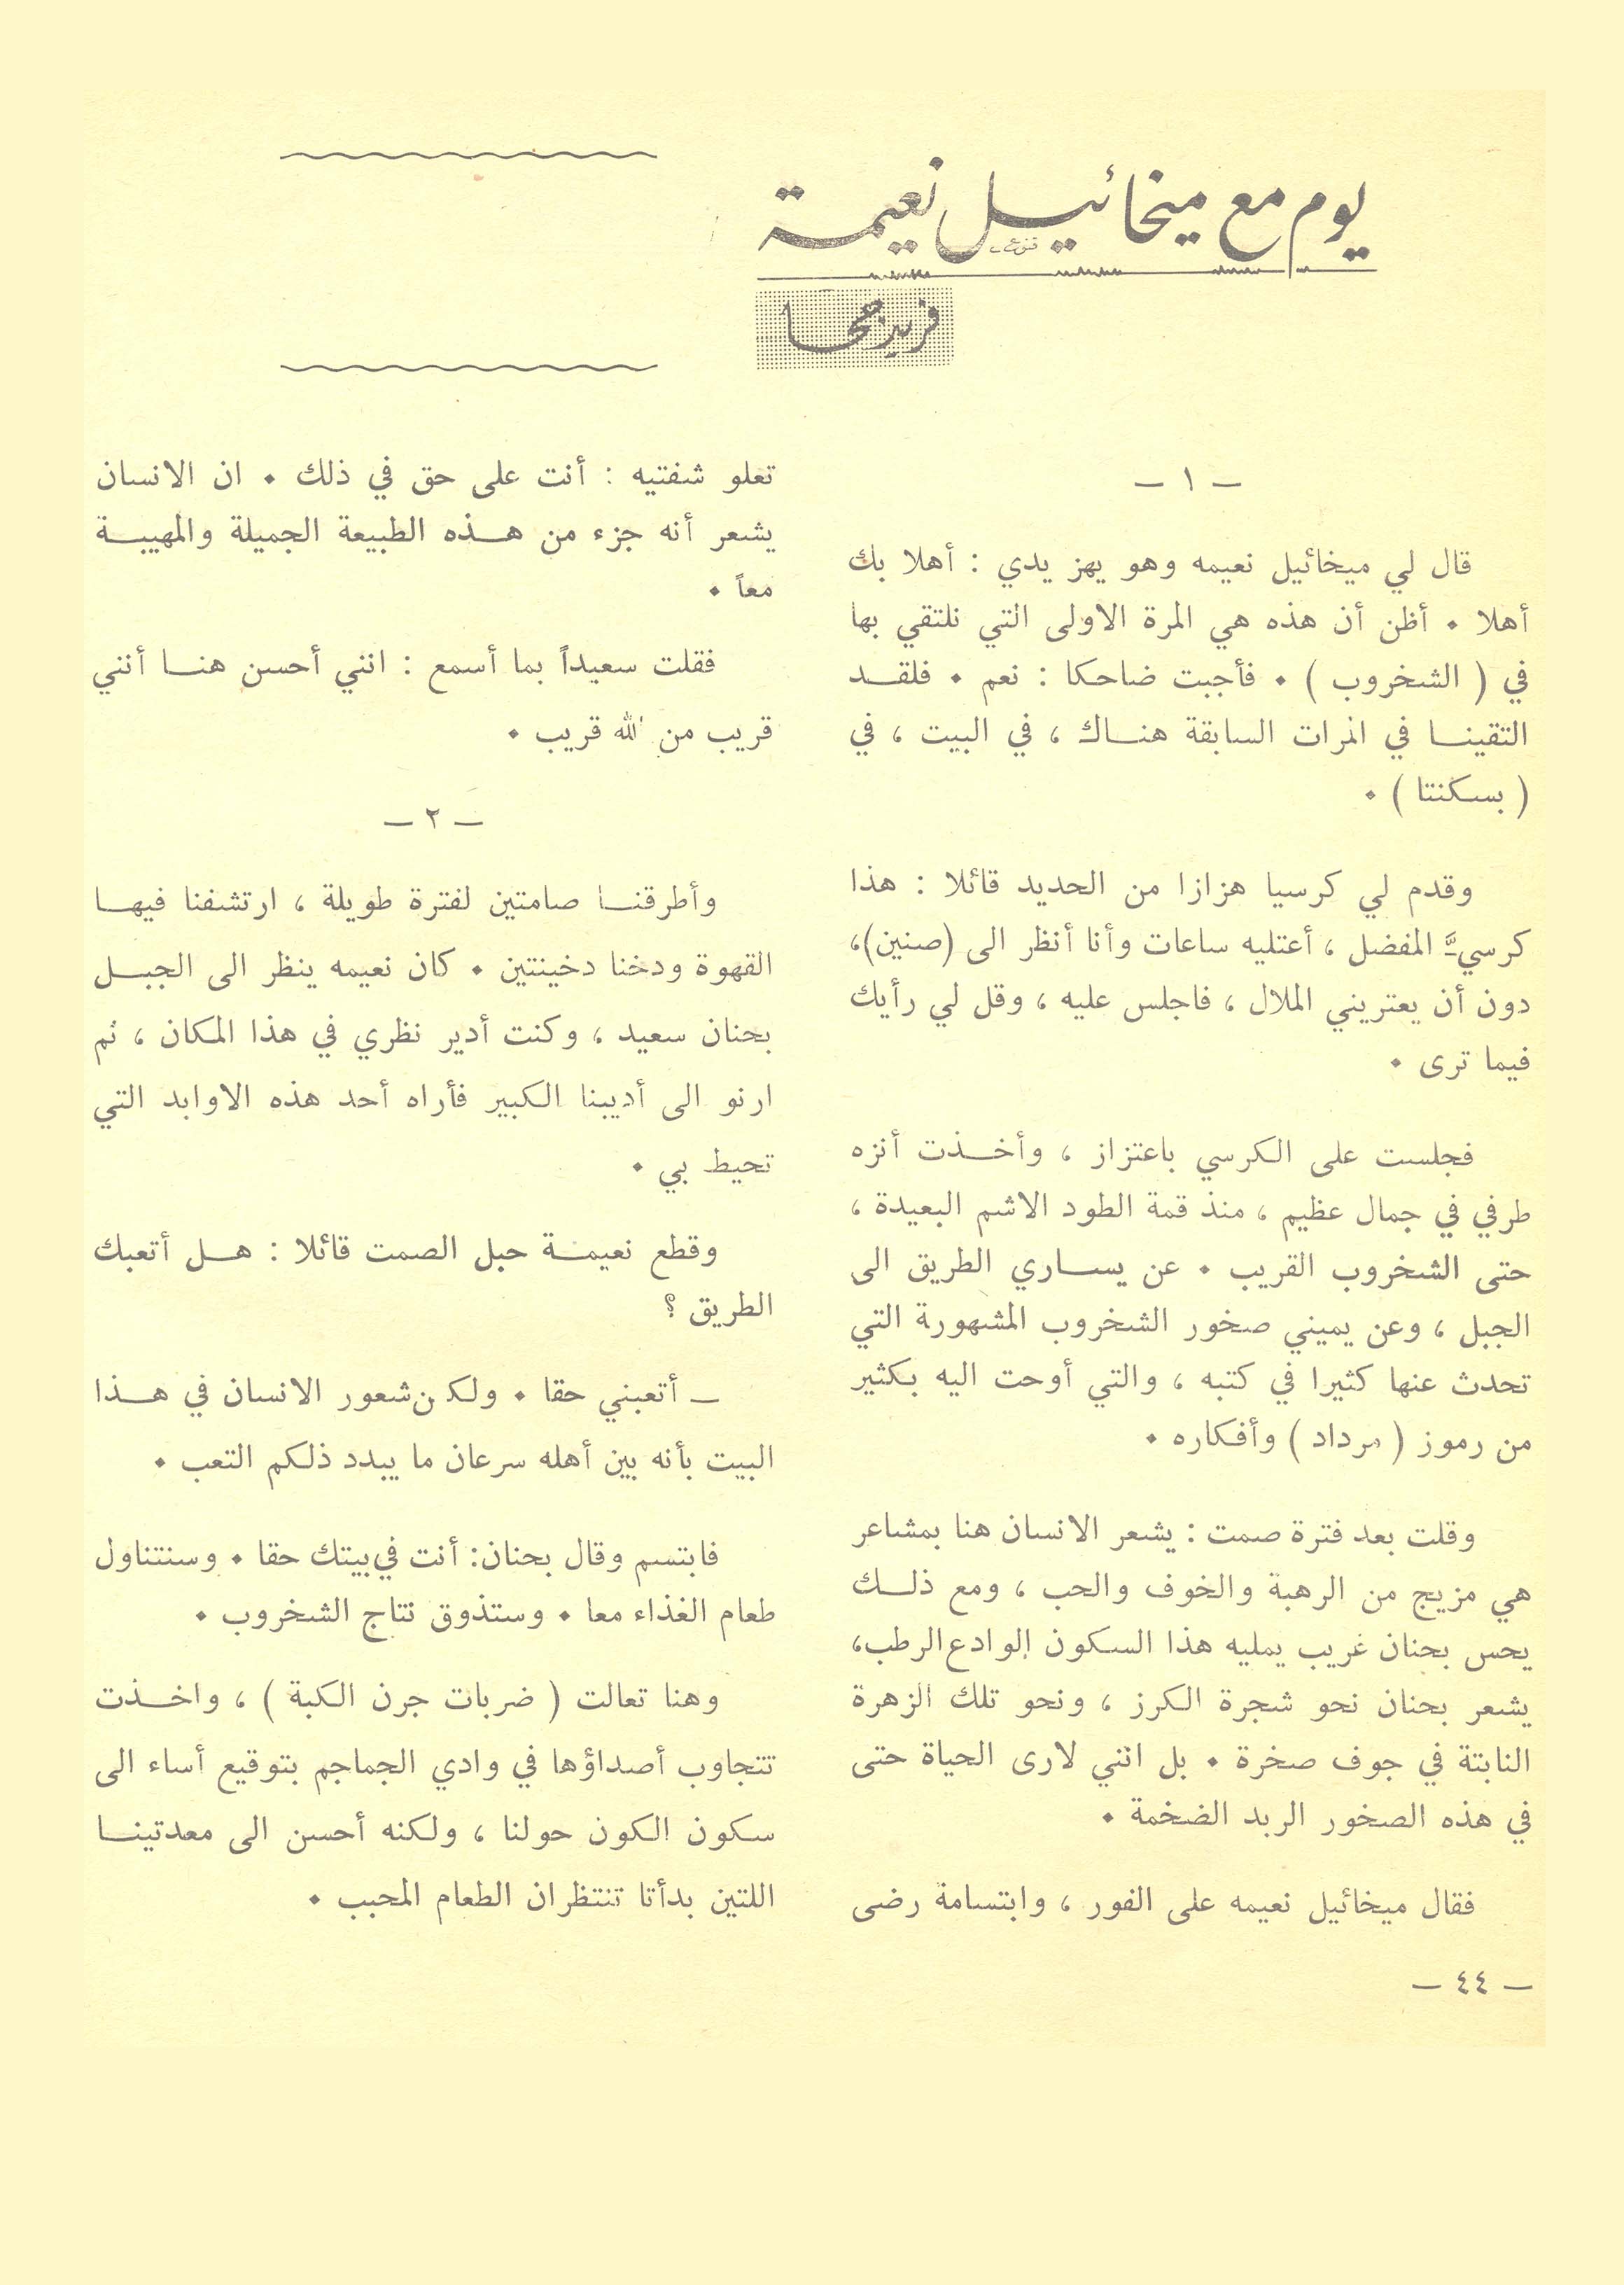 يوم مع ميخائيل نعيمة
فريد جحا
— ١ —
قال لي ميخائيل نعيمه وهو يهز يدي : أهلا بك
أهلا • أظن أن هذه هي المرة الاولى التي نلتقي بها
في ( الشخروب ) • فأجبت ضاحكا : نعم • فلقد
التقينا في المرات السابقة هناك ، في البيت ، في
( بسكنتا ) •
وقدم لي كرسيا هزازا من الحديد قائلا : هذا
كرسيَّ المفضل ، أعتليه ساعات وأنا أنظر الى (صنين)،
دون أن يعتريني الملال ، فاجلس عليه ، وقل لي رأيك
فيما ترى •
فجلست على الكرسي باعتزاز ، وأخذت أنزه
طرفي في جمال عظيم ، منذ قمة الطود الاشم البعيدة ،
حتى الشخروب القريب • عن يساري الطريق الى
الجبل ، وعن يميني صخور الشخروب المشهورة التي
تحدث عنها كثيرا في كتبه ، والتي أوحت اليه بكثير
من رموز ( مرداد ) وأفكاره •
وقلت بعد فترة صمت : يشعر الانسان هنا بمشاعر
هي مزيج من الرهبة والخوف والحب ، ومع ذلك
يحس بحنان غريب يمليه هذا السكون الوادع الرطب،
يشعر بحنان نحو شجرة الكرز ، ونحو تلك الزهرة
النابتة في جوف صخرة • بل انني لارى الحياة حتى
في هذه الصخور الربد الضخمة •
فقال ميخائيل نعيمه على الفور ، وابتسامة رضى
تعلو شفتيه : أنت على حق في ذلك • ان الانسان
يشعر أنه جزء من هذه الطبيعة الجميلة والمهيبة
معاً •
فقلت سعيداً بما أسمع : انني أحسن هنا أنني
قريب من الله قريب •
— ٢ —
وأطرقنا صامتين لفترة طويلة ، ارتشفنا فيها
القهوة ودخنا دخينتين • كان نعيمه ينظر الى الجبل
بحنان سعيد ، وكنت أدير نظري في هذا المكان ، ثم
ارنو الى أديبنا الكبير فأراه أحد هذه الاوابد التي
تحيط بي •
وقطع نعيمة حبل الصمت قائلا : هل أتعبك
الطريق ؟
— أتعبني حقا • ولكن شعور الانسان في هذا
البيت بأنه بين أهله سرعان ما يبدد ذلكم التعب •
فابتسم وقال بحنان: أنت في بيتك حقا • وسنتناول
طعام الغذاء معا • وستذوق نتاج الشخروب •
وهنا تعالت ( ضربات جرن الكبة ) ، واخذت
تتجاوب أصداؤها في وادي الجماجم بتوقيع أساء الى
سكون الكون حولنا ، ولكنه أحسن الى معدتينا
اللتين بدأتا تنتظران الطعام المحبب •
— ٤٤ —